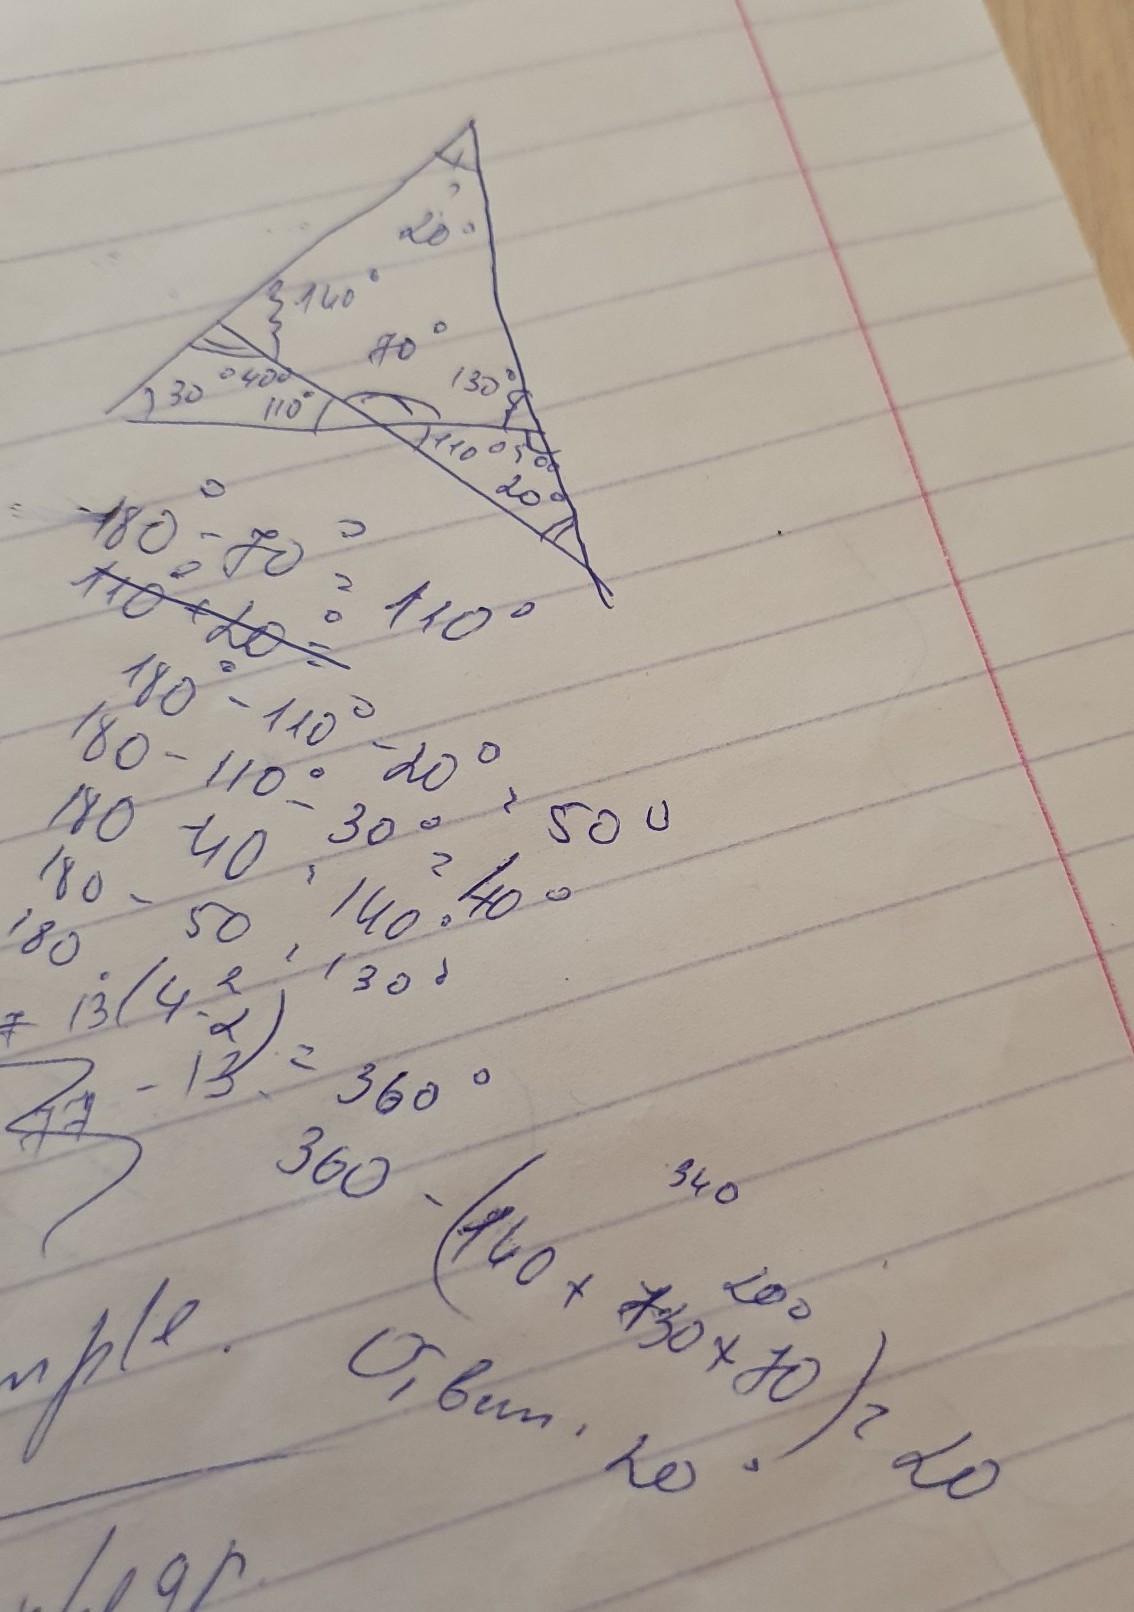 20°
140°
70°
130°
30° 40°
110°
110° 50°
20°
180° - 70° = 110°
110° + 20° =
180° - 110° - 20° = 50°
180 - 110° - 30° = 40°
180 - 40 = 140°
180 - 50 = 130°
180 · (4 - 2) = 360°
- 13
77
340
360 - (140 + 130 + 70) = 20
200
Отвит. 20°
mple.